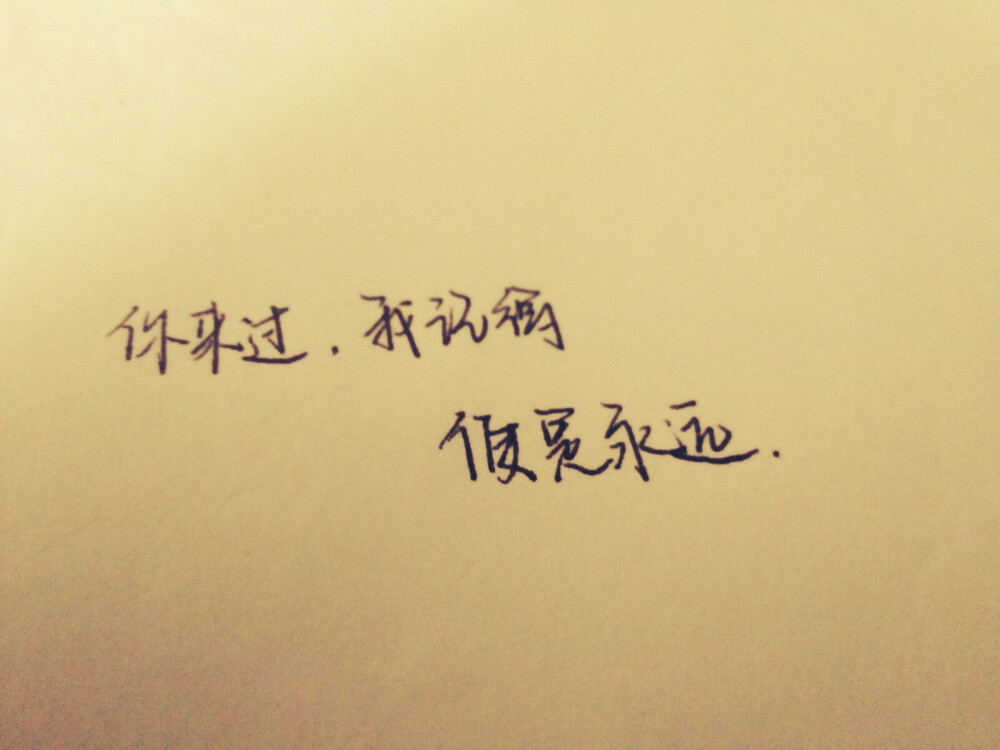 你来过.我记得
便是永远.